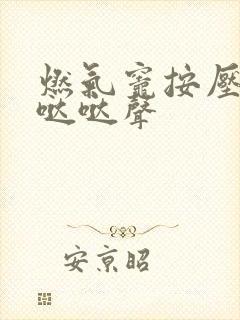 燃氣竈按壓
哒哒聲
安京昭